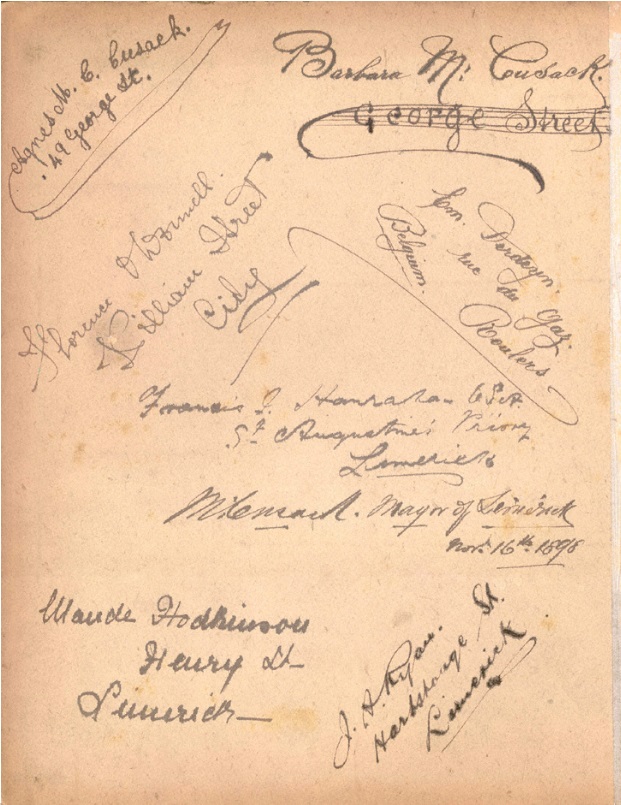 Agnes M. C. Cusack.
49 George St.
Barbara Mc Cusack.
George Street
Florence O'Donnell.
William Street
City
Em. Derdeyn
rue du Gaz.
Roulers
Belgium.
Francis J. Hanrahan O.S.A.
St Augustine's Priory
Limerick
M. Cusack. Mayor of Limerick
Nov. 16th 1898
Maude Hodkinson
Henry St
Limerick
J. H. Ryan.
Hartstonge St.
Limerick